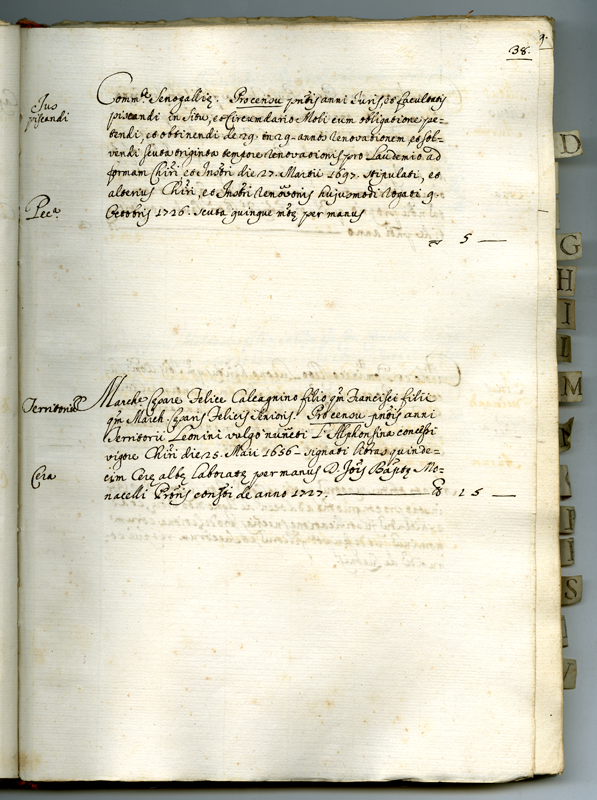 38.
9.
Jus
piscandi
Comm.te Senogallię. Pro censu pñtis anni Juris, et facultatis
piscandi in Situ, et Circumdario Moli cum obligatione pe-
tendi, et obtinendi de 29. in 29. annos renovationem et sol-
vendi scuta triginta tempore renovationis pro Laudemio ad
formam Chiri et Instri die 27. Martii 1697. Stipulati, et
alterius Chiri, et Instri renõvonis hujusmodi rogati 9.
Pec.a
Octobris 1726. scuta quinque mtę per manus
5 —
Territoriũ
Marche Cęsare Felice Calcagnino filio qm̃ Francisci filii
qm̃ March Cęsaris Felicis Senioris. Pro censu pñtis anni
Territorii Leonini vulgo nuñcti L'Alphonsina concessi
vigore Chiri die 25. Maii 1656 - signati libras quinde-
Cera
cim Cerę albę laboratę per manus D. Jois Baptę Mo-
nacelli Pronis constoi de anno 1727.
15 —
D
G
H
I
L
M
P
I
S
V